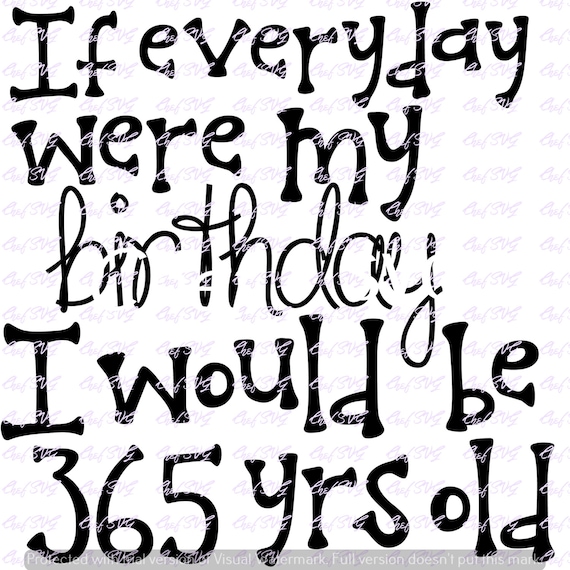 If everyday
were my
birthday
I would be
365 yrs old
Protected with trial version of Visual Watermark. Full version doesn't put this mark.